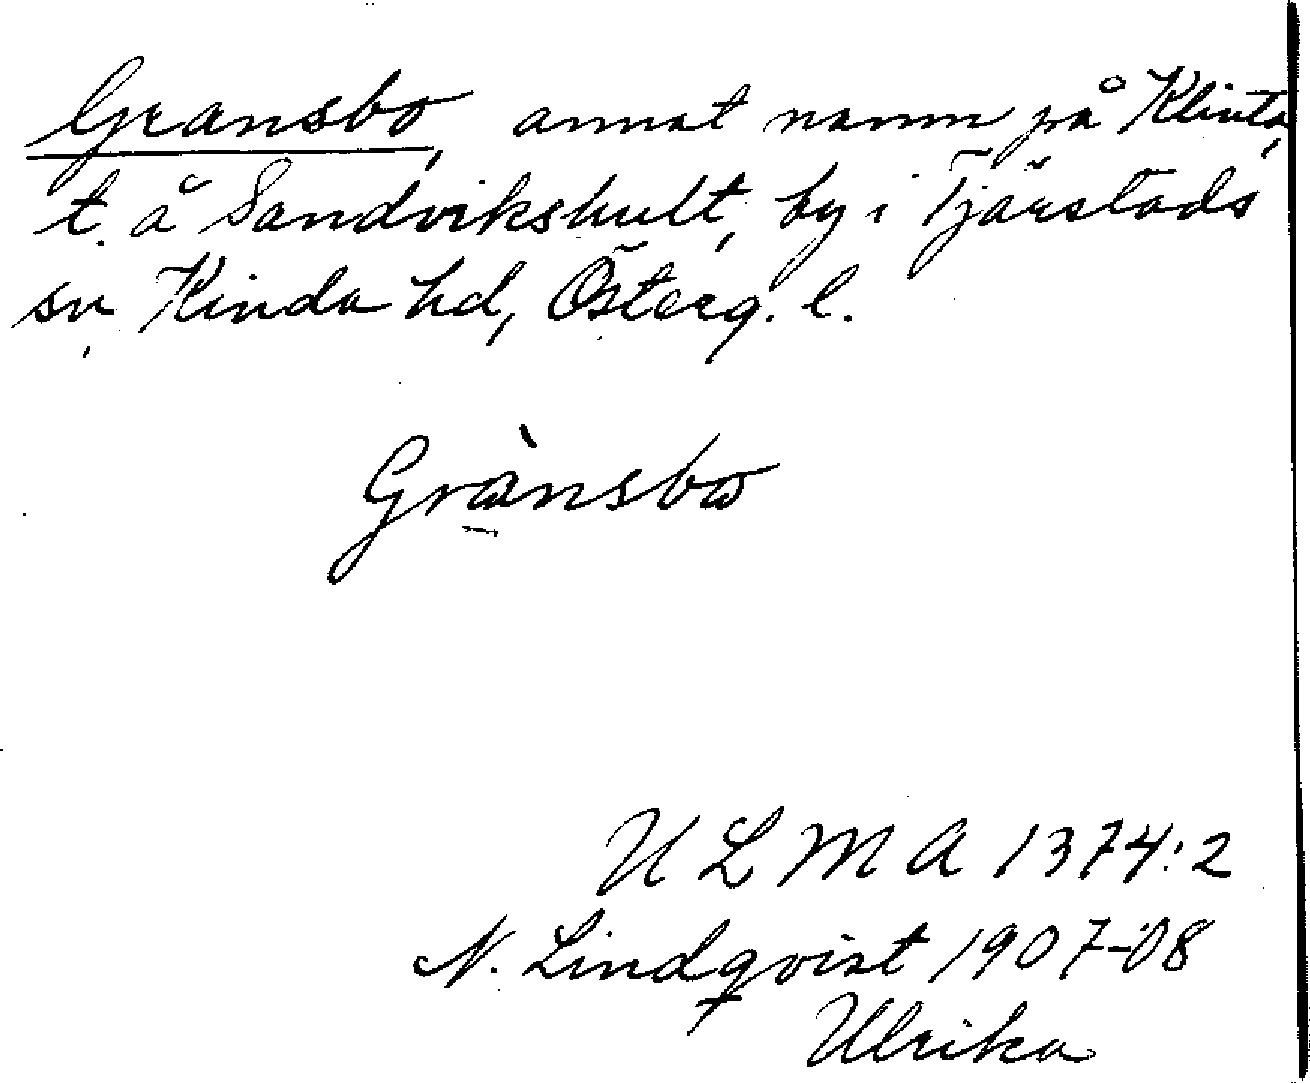 Gransbo, annat namn på Klinta,
t. å Sandvikshult, by i Tjärstads
sn, Kinda hd, Österg. l.
Grànsbo
U L M A 1374:2
N. Lindqvist 1907-08
Ulrika